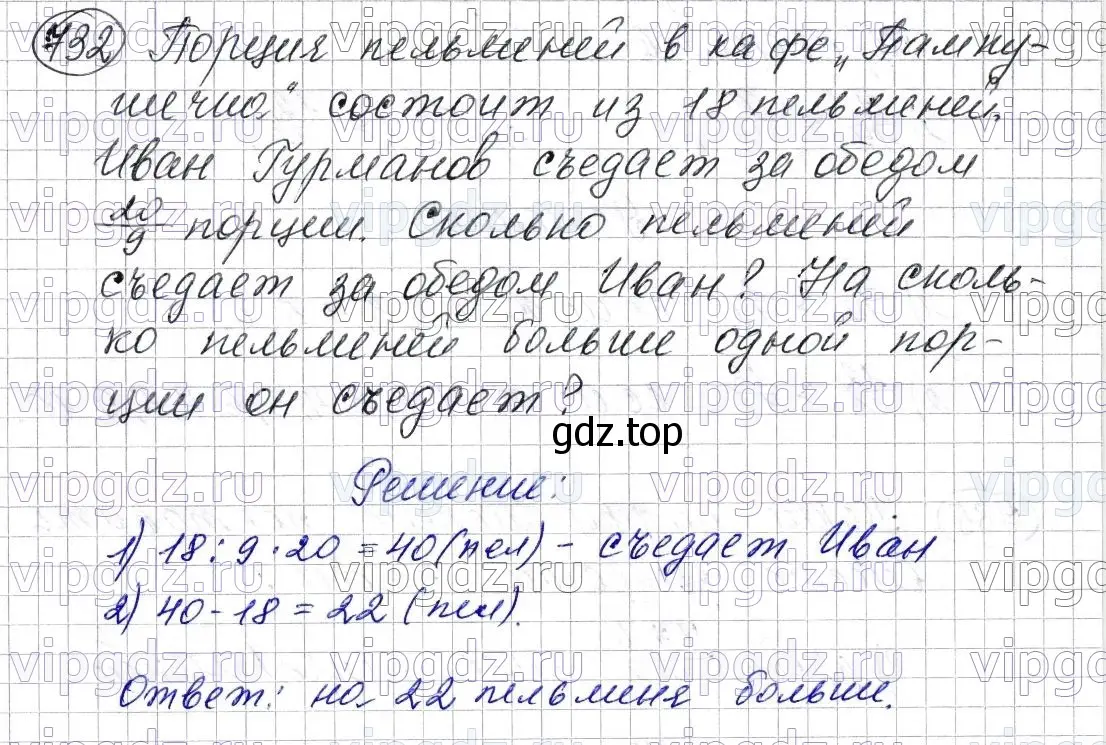 732 Порция пельменей в кафе „Пампу-
шечка" состоит из 18 пельменей.
Иван Гурманов съедает за обедом
20/9 порции. Сколько пельменей
съедает за обедом Иван? На сколь-
ко пельменей больше одной пор-
ции он съедает?
gdz.top
Решение:
1) 18 : 9 · 20 = 40 (пел) - съедает Иван
2) 40 - 18 = 22 (пел).
Ответ: на 22 пельменя больше.
vipgdz.ru